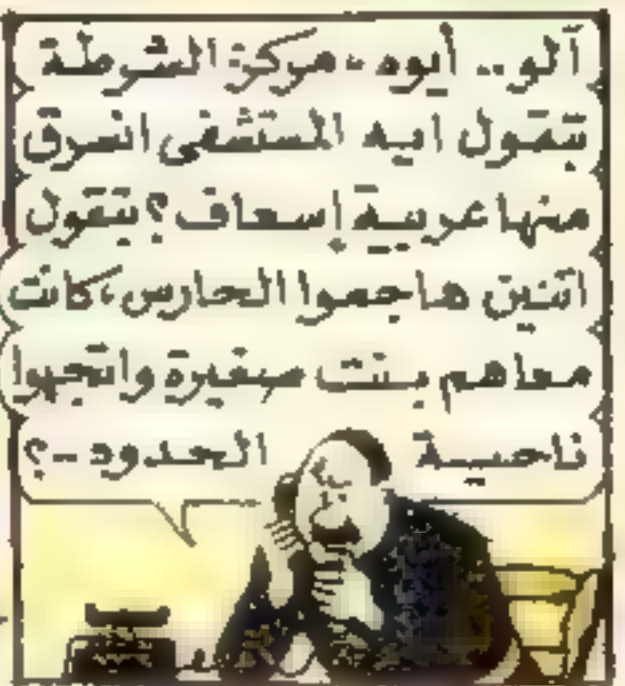 آلو.. أيوه، مركز الشرطة
بتقول ايه المستشفى انسرق
منها عربية إسعاف؟ بتقول
اتنين هاجموا الحارس، كانت
معاهم بنت صغيرة واتجهوا
ناحية الحدود..؟